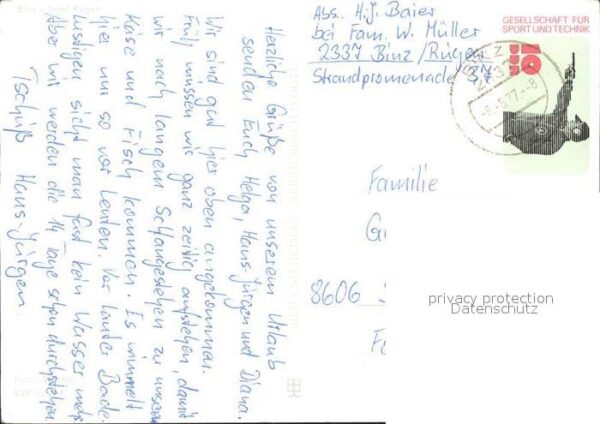 Binz - Insel Rügen
Herzliche Grüße von unserem Urlaub
senden Euch Helga, Hans-Jürgen und Diana.
Wir sind gut hier oben angekommen.
Früh müssen wir ganz zeitig aufstehen, damit
wir nach langem Schlangestehen zu unserem
Käse und Fisch kommen. Es wimmelt
hier nur so vor Leuten. Vor lauter Bade-
lustigen sieht man fast kein Wasser mehr.
Aber wir werden die 14 Tage schon durchstehen.
Tschüß Hans-Jürgen.
Abs.: H.J. Baier
bei Fam. W. Müller
2337 Binz/Rügen
Strandpromenade
GESELLSCHAFT FÜR
SPORT UND TECHNIK
10
DDR
2337
77.-8
Familie
G
8606
privacy protection
Datenschutz
F